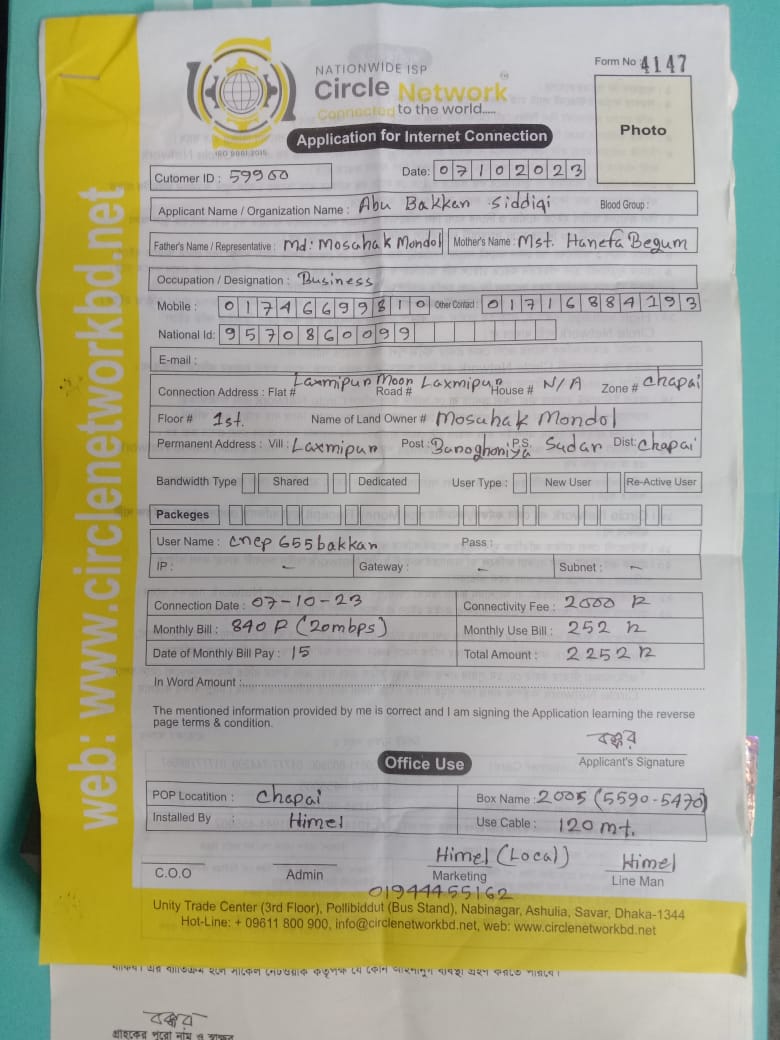 NATIONWIDE ISP
Circle Network
Connected to the world.....
ISO 9001:2015
Form No : 4147
Photo
Application for Internet Connection
Cutomer ID : 59900
Date: 07102023
Applicant Name / Organization Name : Abu Bakkan Siddiqi Blood Group :
Father's Name / Representative : Md: Mosahak Mondol Mother's Name : Mst. Hanefa Begum
Occupation / Designation : Business
Mobile : 01746699810 Other Contact : 01716884193
National Id: 9570860099
E-mail :
Connection Address : Flat # Laxmipur Moor Road # Laxmipur House # N/A Zone # Chapai
Floor # 1st. Name of Land Owner # Mosahak Mondol
Permanent Address : Vill : Laxmipur Post : Baroghoniya P.S. Sadar Dist: Chapai
Bandwidth Type Shared Dedicated User Type : New User Re-Active User
Packeges
User Name : cnep655bakkar Pass :
IP : - Gateway : - Subnet : -
Connection Date : 07-10-23 Connectivity Fee : 2000 
Monthly Bill : 840 P (20mbps) Monthly Use Bill : 252
Date of Monthly Bill Pay : 15 Total Amount : 2252
In Word Amount :
The mentioned information provided by me is correct and I am signing the Application learning the reverse
page terms & condition.
বক্কর
Applicant's Signature
Office Use
POP Locatition : Chapai Box Name : 2005 (5590-5470)
Installed By : Himel Use Cable : 120 mt.
Himel (Local) Himel
C.O.O Admin Marketing Line Man
01944455162
Unity Trade Center (3rd Floor), Pollibiddut (Bus Stand), Nabinagar, Ashulia, Savar, Dhaka-1344
Hot-Line: + 09611 800 900, info@circlenetworkbd.net, web: www.circlenetworkbd.net
web: www.circlenetworkbd.net
বক্কর
গ্রাহকের পুরো নাম ও স্বাক্ষর